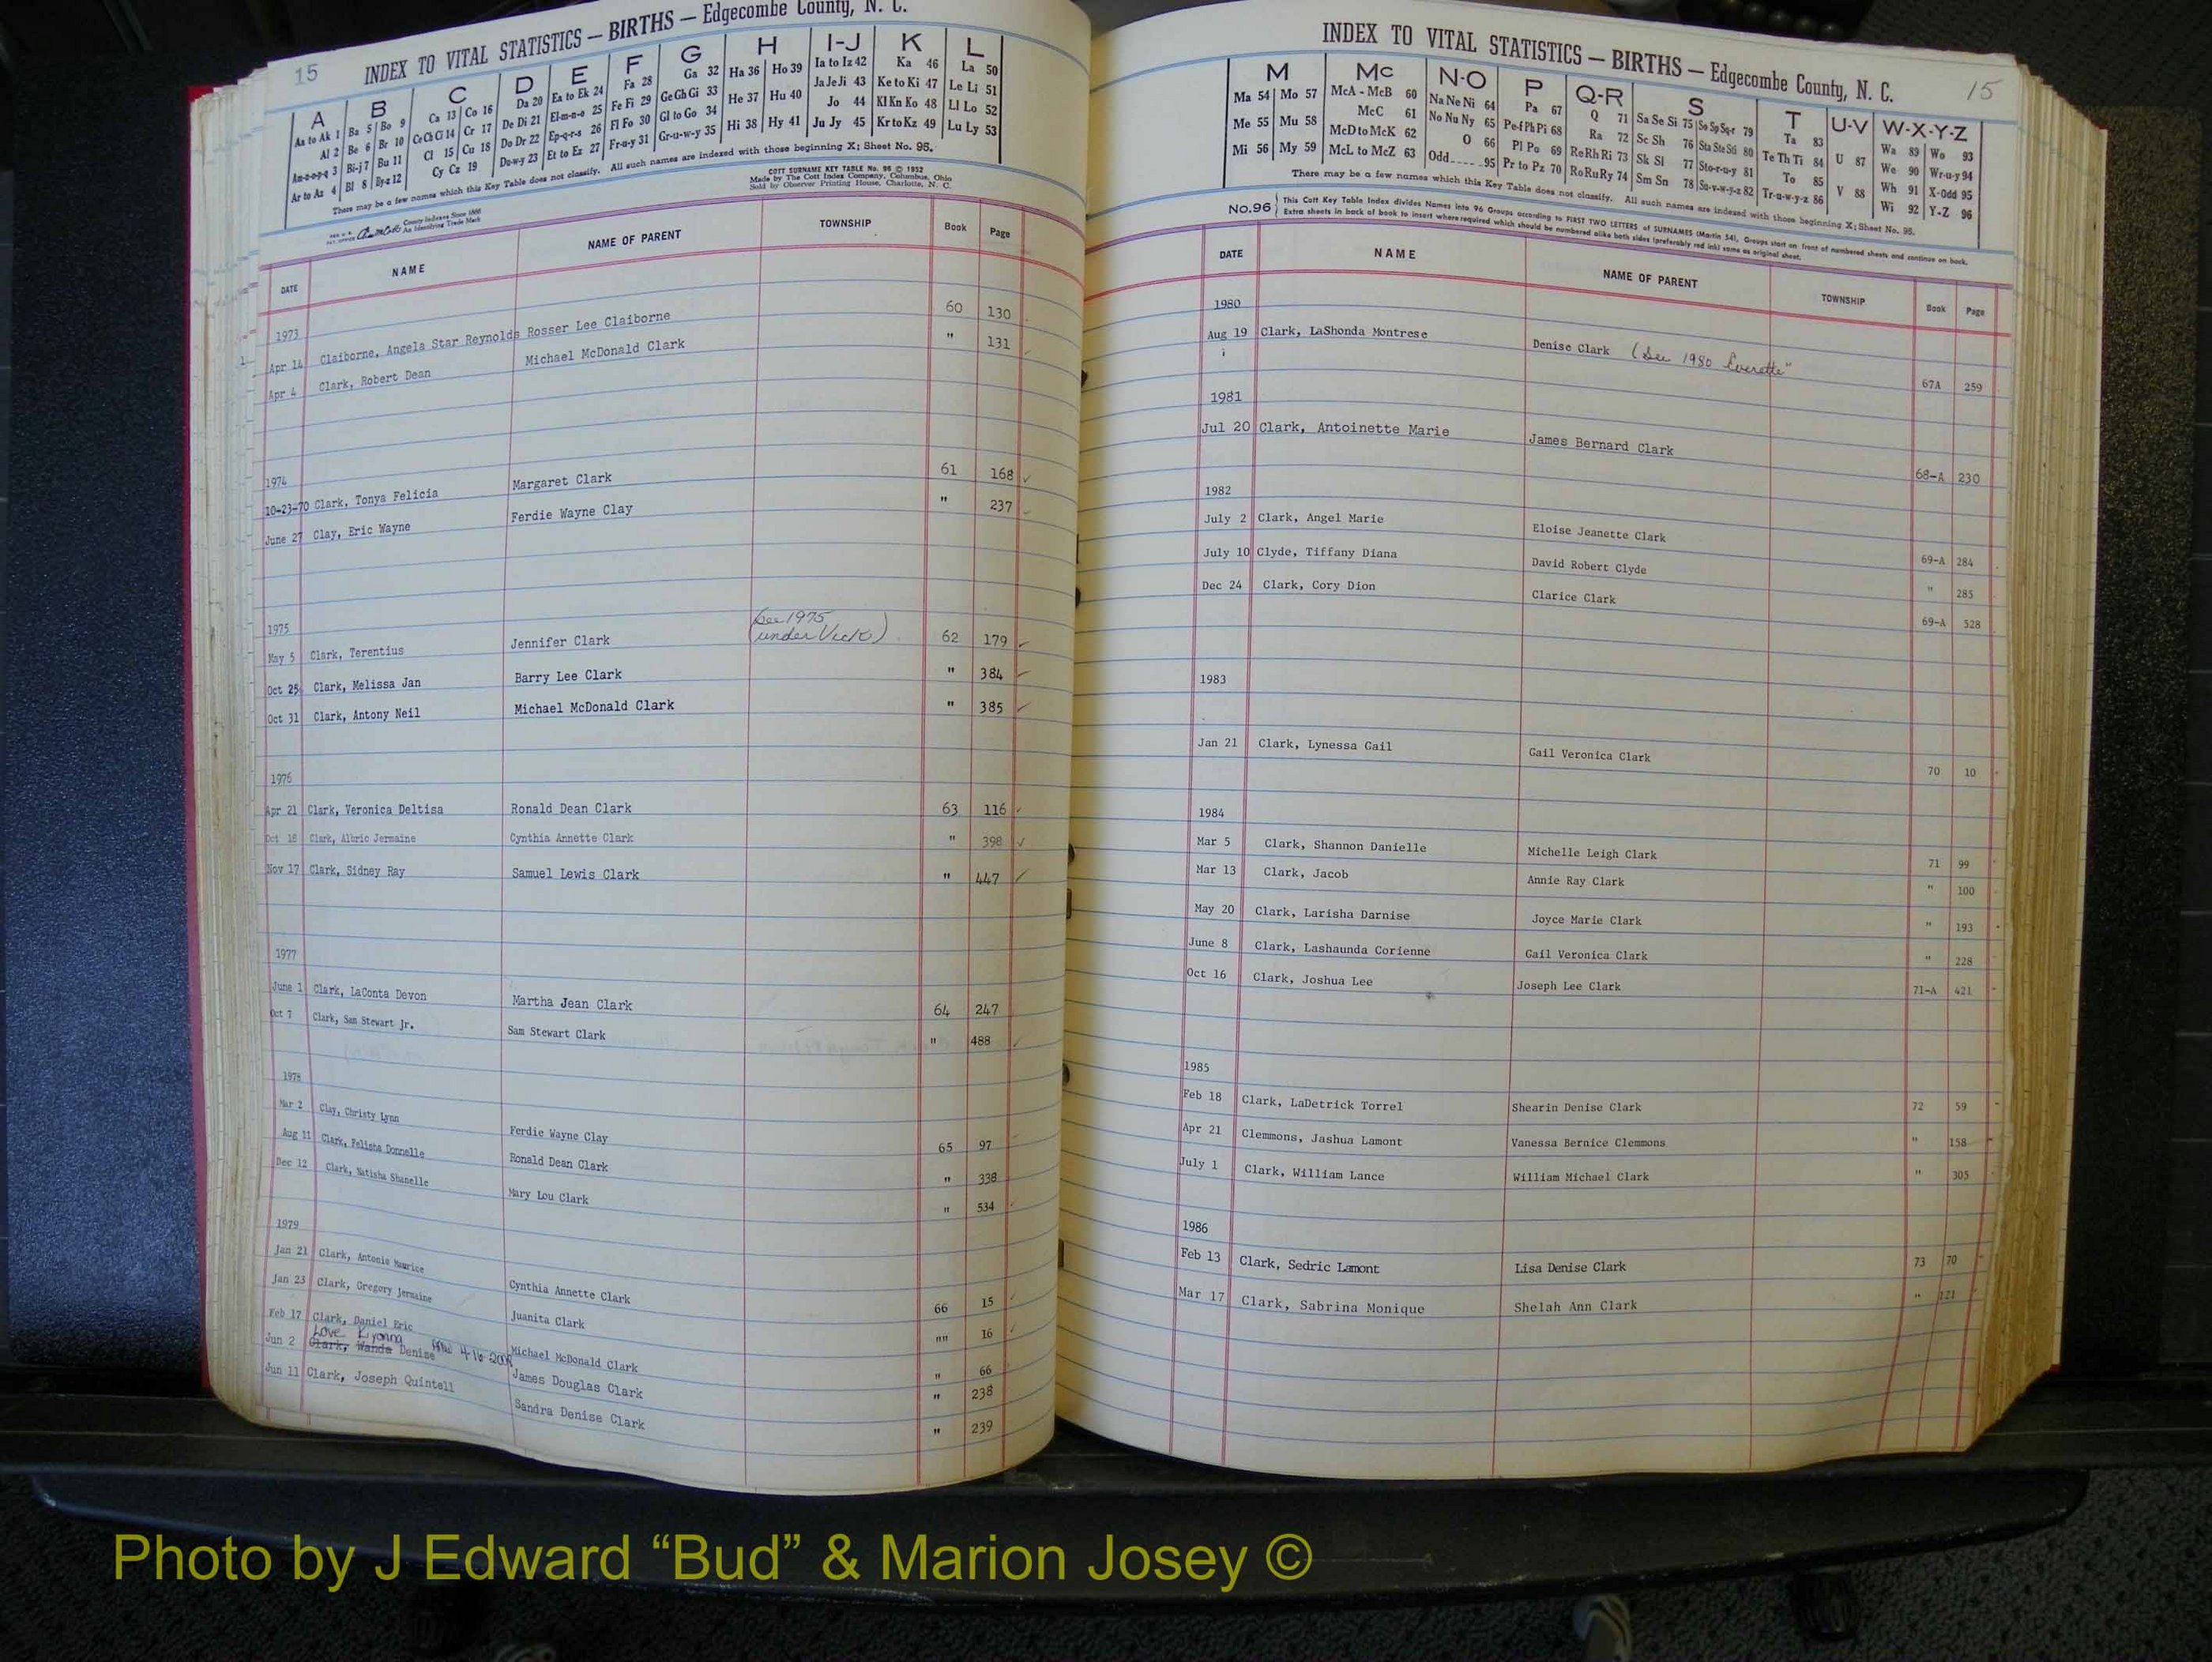 15 INDEX TO VITAL STATISTICS — BIRTHS — Edgecombe County, N. C.
A B C D E F G H I-J K L
Aa to Ak 1 Ba 5 Bo 9 Ca 13 Co 16 Da 20 Ea to Ek 24 Fa 28 Ga 32 Ha 36 Ho 39 Ia to Iz 42 Ka 46 La 50
Al 2 Be 6 Br 10 Ce Ch Ci 14 Cr 17 De Di 21 El-m-n-o 25 Fe Fi 29 Ge Gh Gi 33 He 37 Hu 40 Ja Je Ji 43 Ke to Ki 47 Le Li 51
Am-n-o-p-q 3 Bi-j 7 Bu 11 Cl 15 Cu 18 Do Dr 22 Ep-q-r-s 26 Fl Fo 30 Gl to Go 34 Hi 38 Hy 41 Jo 44 Kl Kn Ko 48 Ll Lo 52
Ar to Az 4 Bl 8 By-z 12 Cy Cz 19 Du-w-y 23 Et to Ez 27 Fr-u-y 31 Gr-u-w-y 35 Ju Jy 45 Kr to Kz 49 Lu Ly 53
There may be a few names which this Key Table does not classify. All such names are indexed with those beginning X; Sheet No. 95.
COTT SURNAME KEY TABLE No. 96 © 1952
Made by The Cott Index Company, Columbus, Ohio
Sold by Observer Printing House, Charlotte, N. C.
County Indexes Since 1888
An Identifying Trade Mark
DATE NAME NAME OF PARENT TOWNSHIP Book Page
1973
Apr 14 Claiborne, Angela Star Reynolds Rosser Lee Claiborne 60 130
Apr 4 Clark, Robert Dean Michael McDonald Clark " 131
1974
10-23-70 Clark, Tonya Felicia Margaret Clark 61 168
June 27 Clay, Eric Wayne Ferdie Wayne Clay " 237
1975
May 5 Clark, Terentius Jennifer Clark (See 1975 under Vick) 62 179
Oct 25 Clark, Melissa Jan Barry Lee Clark " 384
Oct 31 Clark, Antony Neil Michael McDonald Clark " 385
1976
Apr 21 Clark, Veronica Deltisa Ronald Dean Clark 63 116
Oct 18 Clark, Albric Jermaine Cynthia Annette Clark " 398
Nov 17 Clark, Sidney Ray Samuel Lewis Clark " 447
1977
June 1 Clark, LaConta Devon Martha Jean Clark 64 247
Oct 7 Clark, Sam Stewart Jr. Sam Stewart Clark " 488
1978
Mar 2 Clay, Christy Lynn Ferdie Wayne Clay 65 97
Aug 11 Clark, Felisha Donnelle Ronald Dean Clark " 338
Dec 12 Clark, Natisha Shanelle Mary Lou Clark " 534
1979
Jan 21 Clark, Antonio Maurice Cynthia Annette Clark 66 15
Jan 23 Clark, Gregory Jermaine Juanita Clark "" 16
Feb 17 Clark, Daniel Eric Michael McDonald Clark " 66
Love Kyonna
Jun 2 Clark, Wanda Denise James Douglas Clark " 238
Jun 11 Clark, Joseph Quintell Sandra Denise Clark " 239
INDEX TO VITAL STATISTICS — BIRTHS — Edgecombe County, N. C. 15
M Mc N-O P Q-R S T U-V W-X-Y-Z
Ma 54 Mo 57 McA - McB 60 Na Ne Ni 64 Pa 67 Q 71 Sa Se Si 75 So Sp Sq-r 79 Ta 83 U 87 Wa 89 Wo 93
Me 55 Mu 58 McC 61 No Nu Ny 65 Pe-f Ph Pi 68 Ra 72 Sc Sh 76 Sta Ste Sti 80 Te Th Ti 84 V 88 We 90 Wr-u-y 94
Mi 56 My 59 McD to McK 62 O 66 Pl Po 69 Re Rh Ri 73 Sk Sl 77 Sto-r-u-y 81 To 85 Wh 91 X-Odd 95
McL to McZ 63 Odd 95 Pr to Pz 70 Ro Ru Ry 74 Sm Sn 78 Su-v-w-y-z 82 Tr-u-w-y-z 86 Wi 92 Y-Z 96
There may be a few names which this Key Table does not classify. All such names are indexed with those beginning X; Sheet No. 95.
No.96 This Cott Key Table Index divides Names into 96 Groups according to FIRST TWO LETTERS of SURNAMES (Martin 54). Groups start on front of numbered sheets and continue on back.
Extra sheets in back of book to insert where required which should be numbered alike both sides (preferably red ink) same as original sheet.
DATE NAME NAME OF PARENT TOWNSHIP Book Page
1980
Aug 19 Clark, LaShonda Montrese Denise Clark (See 1980 Everette" 67A 259
1981
Jul 20 Clark, Antoinette Marie James Bernard Clark 68-A 230
1982
July 2 Clark, Angel Marie Eloise Jeanette Clark 69-A 284
July 10 Clyde, Tiffany Diana David Robert Clyde " 285
Dec 24 Clark, Cory Dion Clarice Clark 69-A 528
1983
Jan 21 Clark, Lynessa Gail Gail Veronica Clark 70 10
1984
Mar 5 Clark, Shannon Danielle Michelle Leigh Clark 71 99
Mar 13 Clark, Jacob Annie Ray Clark " 100
May 20 Clark, Larisha Darnise Joyce Marie Clark " 193
June 8 Clark, Lashaunda Corienne Gail Veronica Clark " 228
Oct 16 Clark, Joshua Lee Joseph Lee Clark 71-A 421
1985
Feb 18 Clark, LaDetrick Torrel Shearin Denise Clark 72 59
Apr 21 Clemmons, Jashua Lamont Vanessa Bernice Clemmons " 158
July 1 Clark, William Lance William Michael Clark " 305
1986
Feb 13 Clark, Sedric Lamont Lisa Denise Clark 73 70
Mar 17 Clark, Sabrina Monique Shelah Ann Clark " 121
Photo by J Edward “Bud” & Marion Josey ©